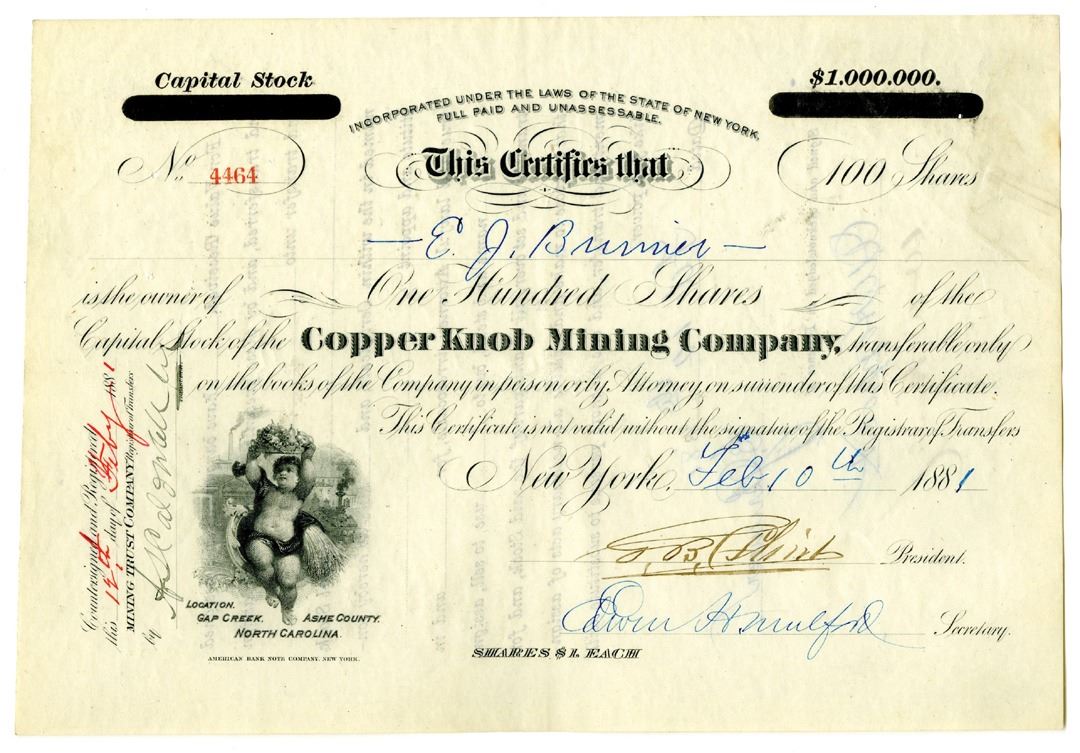 Capital Stock
$1.000.000.
INCORPORATED UNDER THE LAWS OF THE STATE OF NEW YORK,
FULL PAID AND UNASSESSABLE.
No. 4464
This Certifies that
100 Shares
E. J. Brunner
is the owner of One Hundred Shares of the
Capital Stock of the Copper Knob Mining Company, transferable only
on the books of the Company in person or by Attorney, on surrender of this Certificate.
This Certificate is not valid without the signature of the Registrar of Transfers
New York, Feb 10th 1881
President.
Edwin H Mulford Secretary.
SHARES $1. EACH
LOCATION.
GAP CREEK. ASHE COUNTY.
NORTH CAROLINA.
AMERICAN BANK NOTE COMPANY. NEW YORK.
Countersigned and Registered
this 12th day of Feby 1881
MINING TRUST COMPANY Registrar of Transfers
by